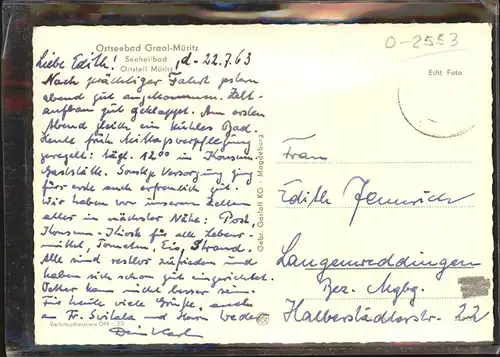 Ostseebad Graal-Müritz
Seeheilbad
Ortsteil Müritz
O-2553
Echt Foto
Liebe Edith! , d. 22.7.63
Nach prächtiger Fahrt gestern
abend gut angekommen. Zelt-
aufbau gut geklappt. Am ersten
Abend gleich ein kühles Bad.
Heute früh Mittagsverpflegung
geregelt: tägl. 12 00 in Konsum-
Gaststätte. Sonstige Versorgung ging
fürs erste auch erfreulich gut.
Wir haben vor unseren Zelten
alles in nächster Nähe: Post,
Konsum-Kiosk für alle Lebens-
mittel, Tomaten, Eis, Strand.
Alle sind restlos zufrieden und
haben sich schon gut eingerichtet.
Wetter kann nicht besser sein.
Für heute viele Grüße, auch
an Fr. und Herrn
Dein Karl
Verbraucherpreis DM -,20
Gebr. Garloff KG - Magdeburg
Frau
Edith Jennrich
Langenweddingen
Bez. Mgbg.
Halberstädterstr. 22